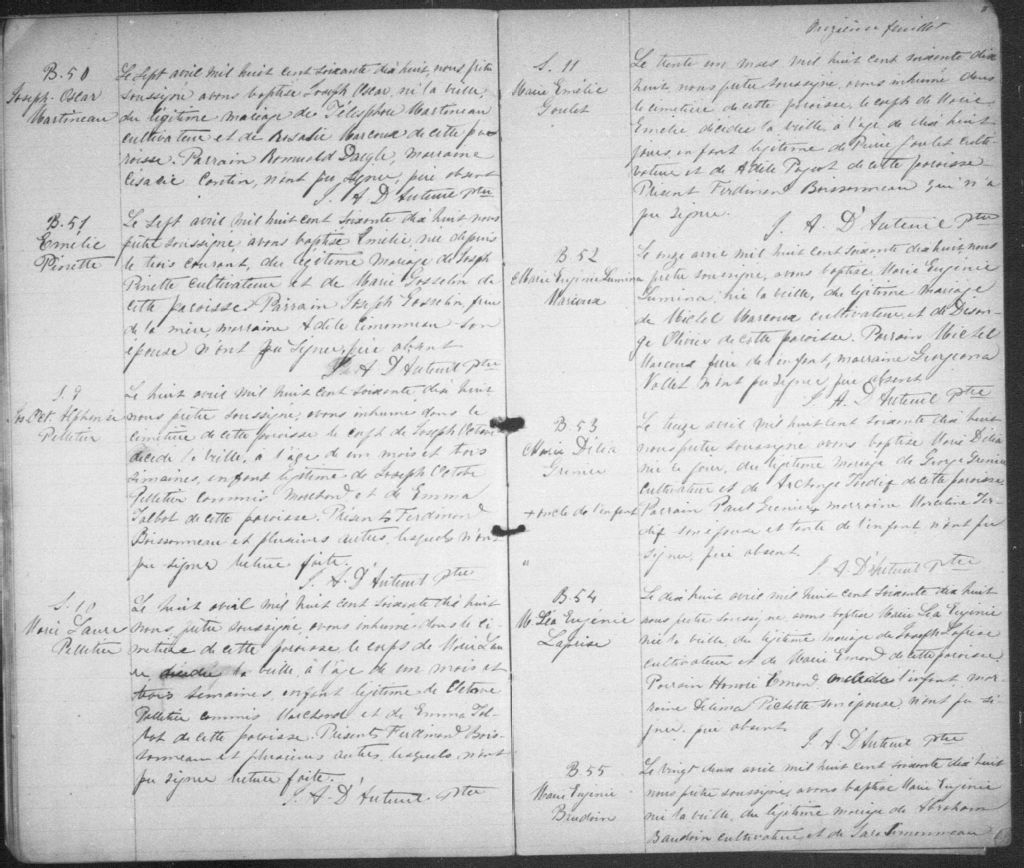 B. 50
Joseph-Oscar
Martineau
Le sept avril mil huit cent soixante dix huit, nous prêtre
soussigné avons baptisé Joseph Oscar, né la veille,
du légitime mariage de Télesphore Martineau
cultivateur et de Rosalie Marcoux de cette pa-
roisse. Parrain Romuald Daigle, marraine
Césalie Cantin, n'ont pu signer, père absent
J. A. D'Auteuil ptre
B. 51
Emélie
Pinette
Le sept avril mil huit cent soixante dix huit nous
prêtre soussigné, avons baptisé Emélie, née depuis
le trois courant, du légitime mariage de Joseph
Pinette cultivateur et de Marie Gosselin de
cette paroisse. Parrain Joseph Gosselin frère
de la mère, marraine Adèle Simonneau son
épouse n'ont pu signer, père absent
J. A. D'Auteuil ptre
S. 9
Jos. Oct. Alphonse
Pelletier
Le huit avril mil huit cent soixante dix huit
nous prêtre soussigné, avons inhumé dans le
cimetière de cette paroisse le corps de Joseph Octave
décédé la veille, à l'âge de un mois et trois
semaines, enfant légitime de Joseph Octave
Pelletier commis marchand et de Emma
Talbot de cette paroisse. Présents Ferdinand
Boissonneau et plusieurs autres, lesquels n'ont
pu signer lecture faite.
J. A. D'Auteuil ptre
S. 10
Marie Laure
Pelletier
Le huit avril mil huit cent soixante dix huit
nous, prêtre soussigné, avons inhumé dans le ci-
metière de cette paroisse, le corps de Marie Lau
re, décédée la veille, à l'âge de un mois et
trois semaines, enfant légitime de Octave
Pelletier commis marchand et de Emma Tal-
bot de cette paroisse. Présents Ferdinand Bois-
sonneau et plusieurs autres, lesquels, n'ont
pu signer lecture faite.
J. A. D'Auteuil ptre
Onzième feuillet
S. 11
Marie Emélie
Goulet
Le trente un mars mil huit cent soixante dix
huit, nous prêtre soussigné, avons inhumé dans
le cimetière de cette paroisse, le corps de Marie
Emélie décédée la veille, à l'âge de dix huit
jours enfant légitime de Pierre Goulet culti-
vateur et de Adèle de cette paroisse
Présent Ferdinand Boissonneau qui n'a
pu signer.
J. A. D'Auteuil ptre
B. 52
Marie Eugénie Lumina
Marcoux
Le onze avril mil huit cent soixante dix huit nous
prêtre soussigné, avons baptisé Marie Eugénie
Lumina, née la veille, du légitime mariage
de Michel Marcoux cultivateur, et de
Olivier de cette paroisse. Parrain Michel
Marcoux frère de l'enfant, marraine Georgeanna
n'ont pu signer, père absent
J. A. D'Auteuil ptre
B. 53
Marie Délia
Grenier
+ oncle de l'enfant
"
Le treize avril mil huit cent soixante dix huit
nous prêtre soussigné avons baptisé Marie Délia
née ce jour, du légitime mariage de George Grenier
cultivateur et de Archange Tardif de cette paroisse
Parrain Paul Grenier + marraine Marceline Tar-
dif son épouse et tante de l'enfant, n'ont pu
signer, père absent.
J. A. D'Auteuil ptre
B. 54
M. Léa Eugénie
Laprise
Le dix huit avril mil huit cent soixante dix huit
nous prêtre soussigné, avons baptisé Marie Léa Eugénie
née la veille du légitime mariage de Joseph Laprise
cultivateur et de Marie Emond de cette paroisse.
Parrain Honoré Emond, oncle de l'enfant, mar-
raine Délima Pichette son épouse, n'ont pu si-
gner, père absent.
J. A. D'Auteuil ptre
B. 55
Marie Eugénie
Baudoin
Le vingt deux avril mil huit cent soixante dix huit
nous prêtre soussigné, avons baptisé Marie Eugénie
née la veille, du légitime mariage de Abraham
Baudoin cultivateur, et de Sara Simonneau